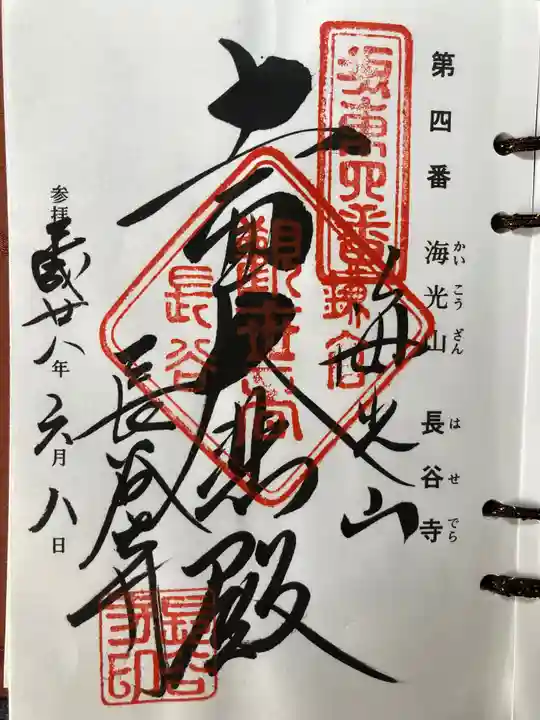 第四番 海光山 長谷寺
かいこうざん はせでら
坂東四番
海光山
鎌倉
観世音
長谷
大悲殿
長谷寺
長谷寺印
参拝 平成廿八年六月八日